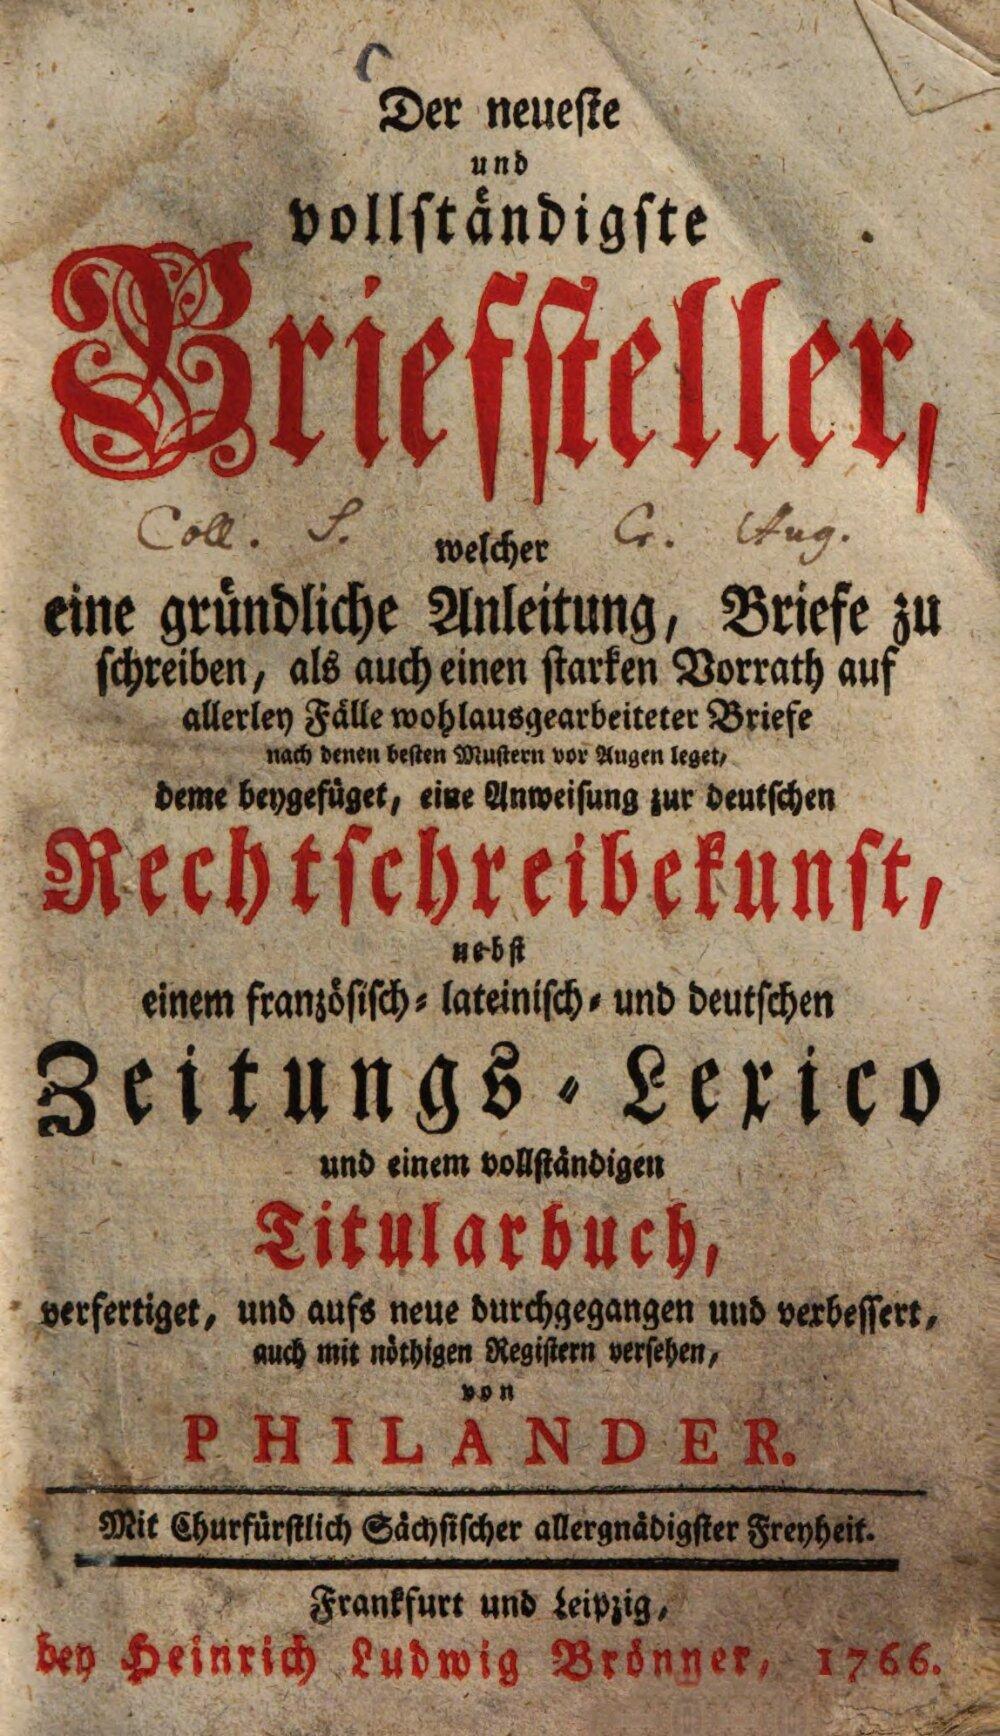 Der neueste
und
vollständigste
Briefsteller,
Coll. S. Cr. Aug.
welcher
eine gründliche Anleitung, Briefe zu
schreiben, als auch einen starken Vorrath auf
allerley Fälle wohlausgearbeiteter Briefe
nach denen besten Mustern vor Augen leget,
deme beygefüget, eine Anweisung zur deutschen
Rechtschreibekunst,
nebst
einem französisch- lateinisch- und deutschen
Zeitungs-Lexico
und einem vollständigen
Titularbuch,
verfertiget, und aufs neue durchgegangen und verbessert,
auch mit nöthigen Registern versehen,
von
PHILANDER.
Mit Churfürstlich Sächsischer allergnädigster Freyheit.
Frankfurt und Leipzig,
bey Heinrich Ludwig Brönner, 1766.